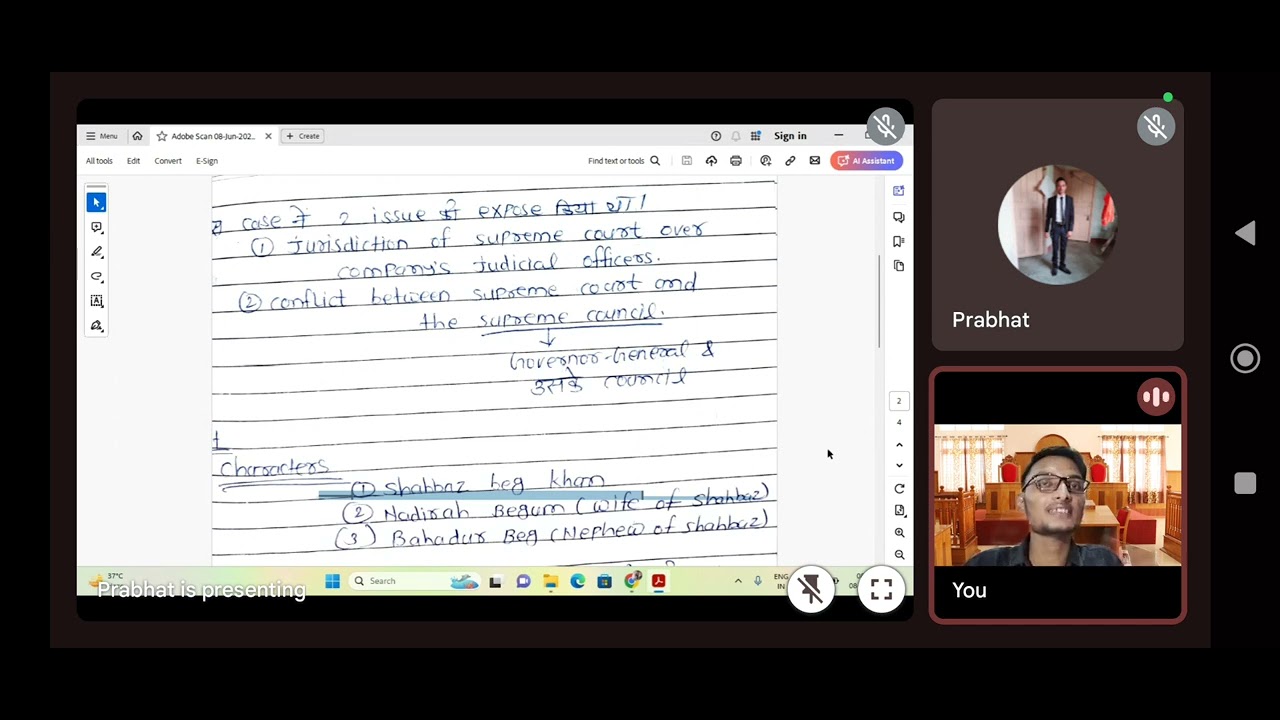 Menu
Adobe Scan 08-Jun-202...
Create
Sign in
All tools Edit Convert E-Sign
Find text or tools
AI Assistant
case में 2 issue को expose किया था।
① Jurisdiction of supreme court over
company's Judicial officers.
② conflict between supreme court and
the supreme council.
Governor-General &
उसके council
Characters
① Shahbaz beg khan
② Nadirah Begum (wife of Shahbaz)
(3) Bahadur Beg (Nephew of shahbaz)
2
4
37°C
Search
ENG
IN
Prabhat is presenting
Prabhat
You